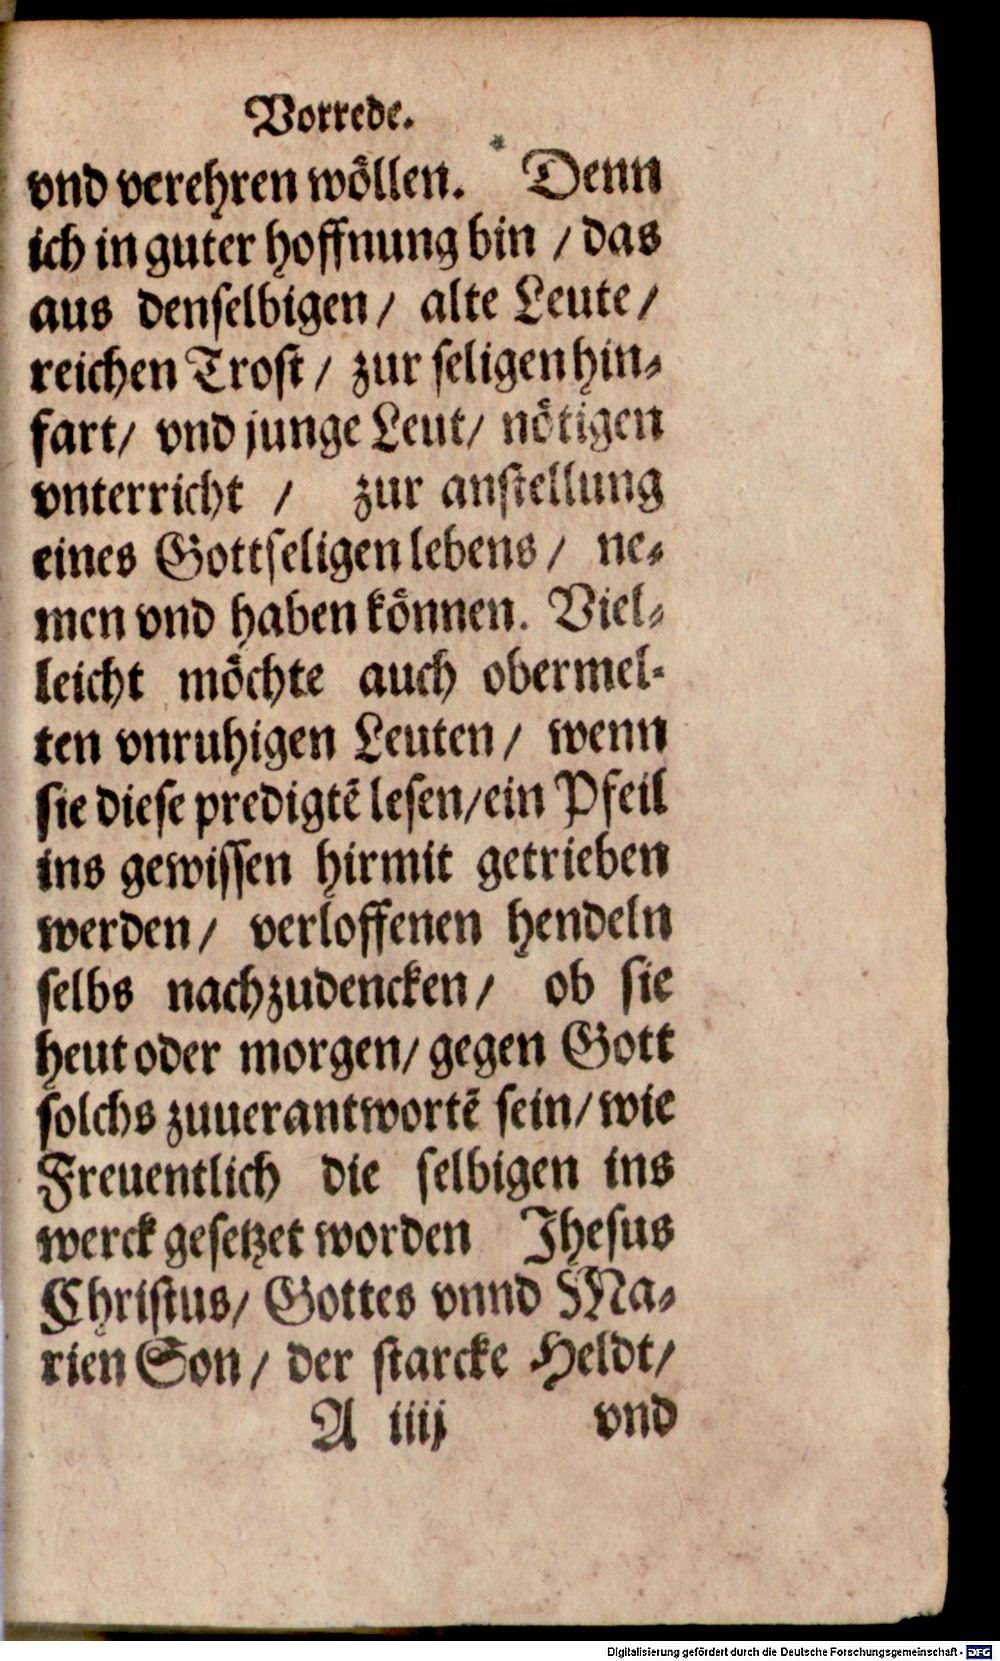 Vorrede.
vnd verehren wöllen. Denn
ich in guter hoffnung bin / das
aus denselbigen / alte Leute /
reichen Trost / zur seligen hin⸗
fart / vnd junge Leut / nötigen
vnterricht / zur anstellung
eines Gottseligen lebens / ne⸗
men vnd haben können. Viel⸗
leicht möchte auch obermel⸗
ten vnruhigen Leuten / wenn
sie diese predigtē lesen / ein Pfeil
ins gewissen hirmit getrieben
werden / verloffenen hendeln
selbs nachzudencken / ob sie
heut oder morgen / gegen Gott
solchs zuuerantwortē sein / wie
Freuentlich die selbigen ins
werck gesetzet worden Jhesus
Christus / Gottes vnnd Ma⸗
rien Son / der starcke Heldt /
A iiij vnd
Digitalisierung gefördert durch die Deutsche Forschungsgemeinschaft - DFG